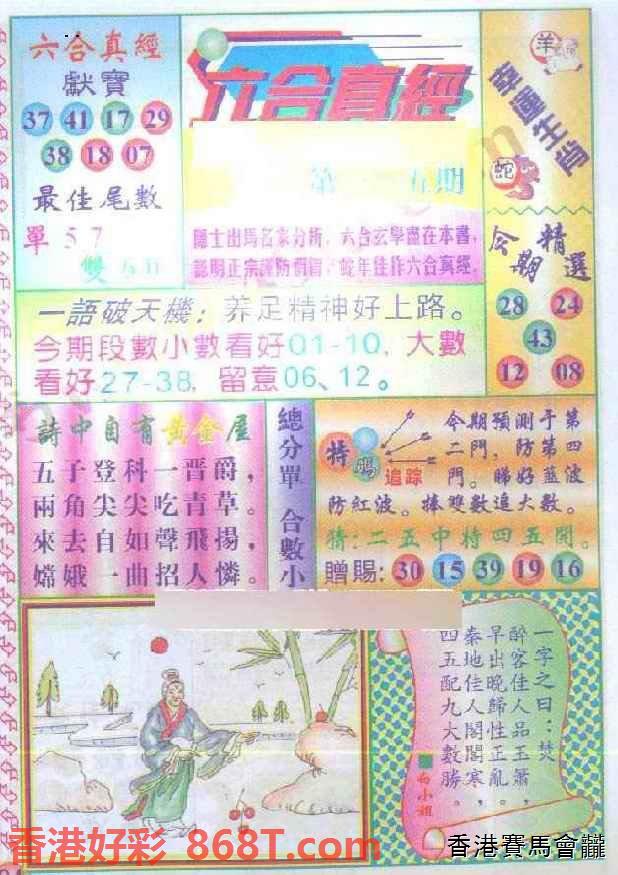 六合真經
獻寶
37 41 17 29
38 18 07
最佳尾數
單 5 7
雙
六合真經
第 五期
隱士出馬名家分析，六合玄學盡在本書，
認明正宗謹防假冒，蛇年佳作六合真經。
羊
幸運生肖
蛇
今期精選
28 24
43
12 08
一語破天機：养足精神好上路。
今期段數小數看好01-10，大數
看好27-38，留意06、12。
詩中自有黃金屋
五子登科一晋爵，
兩角尖尖吃青草。
來去自如聲飛揚，
嫦娥一曲招人憐。
總分單 合數小
特碼
追踪
今期預測于第
二門，防第四
門。睇好藍波
防紅波。捧雙數追大數。
猜:二五中特四五開。
贈賜: 30 15 39 19 16
一字之曰：焚
醉客佳人品玉簫，
早出晚歸性正亂。
秦地佳人閣閣寒，
四五配九大數勝。
白小姐
香港好彩 868T.com
香港賽馬會